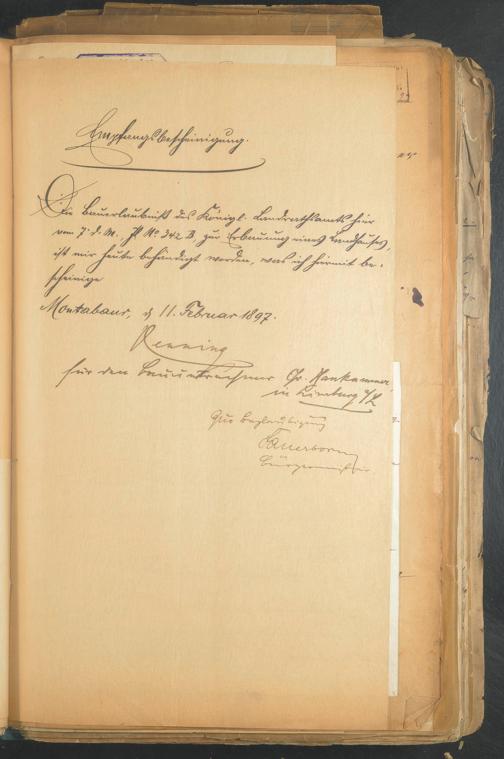 Empfangsbescheinigung.
Die Bauerlaubniß des Königl. Landrathsamts hier
vom 7. d. M. No 342 B, zur Erbauung eines Landhauses,
ist mir heute behändigt worden, was ich hiermit be-
scheinige
Montabaur, d 11. Februar 1897.
Renning
für den Bauunternehmer Gr.
in Limburg
Zur Beglaubigung
Sauerborn
Bürgermeister